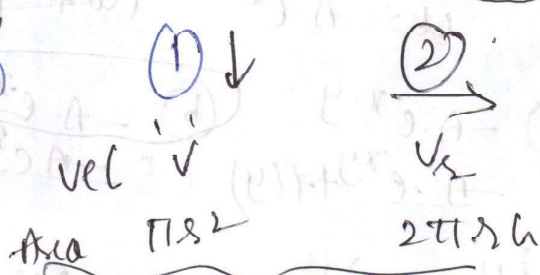 ① ↓ ②
→
vel 'v' Vr
Area πr² 2πrh